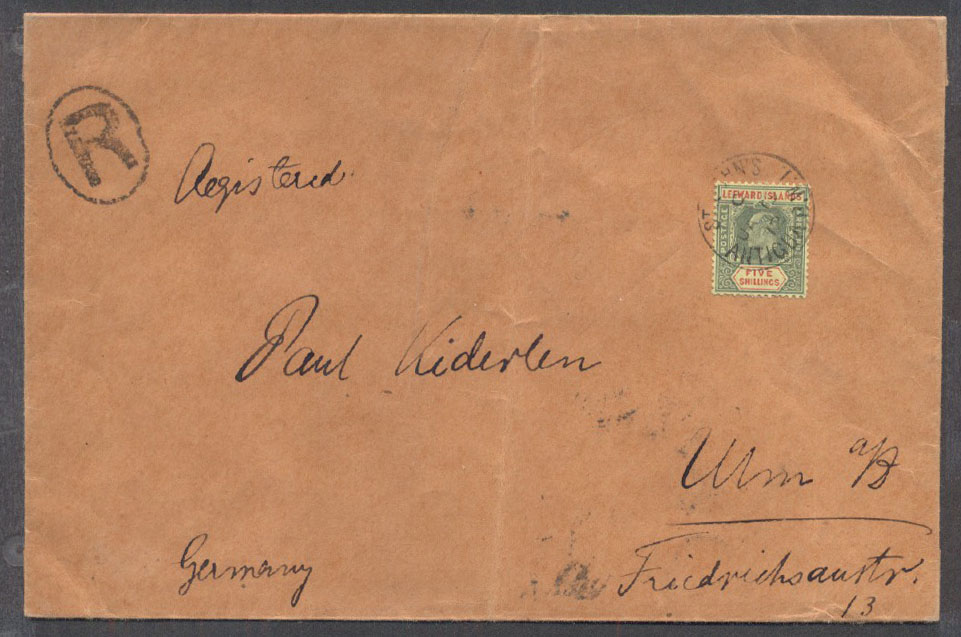 R
Registered.
ST JOHN'S
ANTIGUA
LEEWARD ISLANDS
POSTAGE
FIVE
SHILLINGS
Paul Kiderlen
Ulm a/D
Germany
Friedrichsaustr.
13